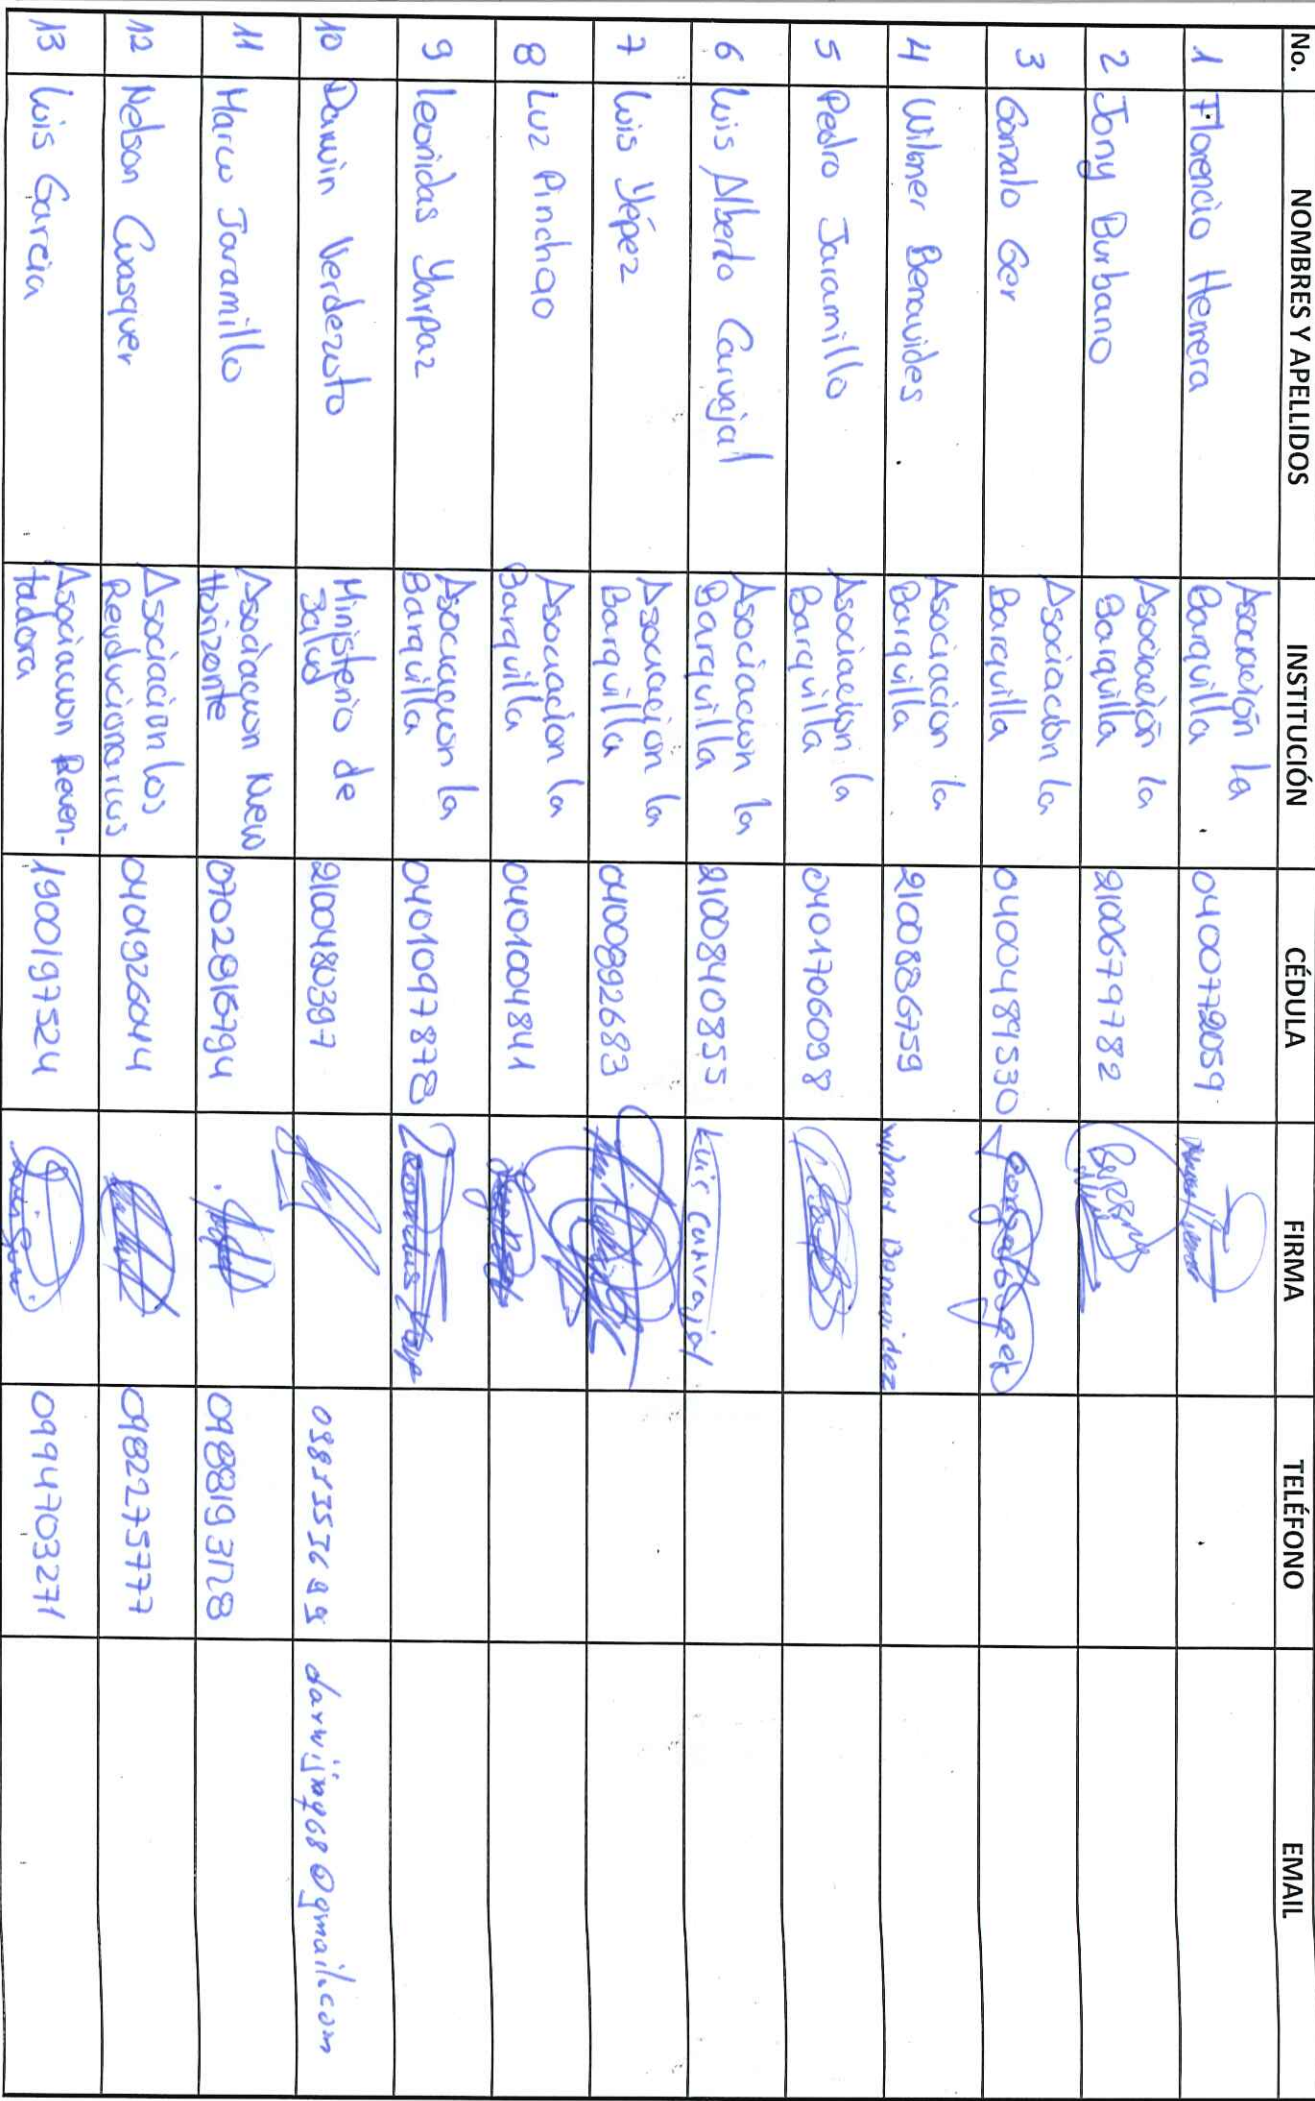 No. NOMBRES Y APELLIDOS INSTITUCIÓN CÉDULA FIRMA TELÉFONO EMAIL
1 Florencio Herrera Asociación la Barquilla 0400772059
2 Jony Burbano Asociación la Barquilla 2100679782
3 Gonzalo Ger Asociacion la Barquilla 0400489530 Gonzalo Ger
4 Wilmer Benavides Asociacion la Barquilla 2100886759 wilmer Benavidez
5 Pedro Jaramillo Asociacion la Barquilla 0401706098
6 Luis Alberto Carvajal Asociacion la Barquilla 2100840855 Luis Carvajal
7 Luis Yépez Asociacion la Barquilla 0400892683
8 Luz Pinchao Asociacion la Barquilla 0401004841
9 Leonidas Yarpaz Asociacion la Barquilla 0401097878
10 Darwin Verdezoto Ministerio de Salud 2100480397
11 Marco Jaramillo Asociacion New Horizonte 0702816794 0988193128
12 Nelson Cuasquer Asociacion los Revducionarios 0401926044 0982275777
13 Luis Garcia Asociacion Reven-
tadora 1900197524 0994703271